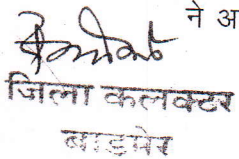 ने अ
जिला कलक्टर
बाड़मेर